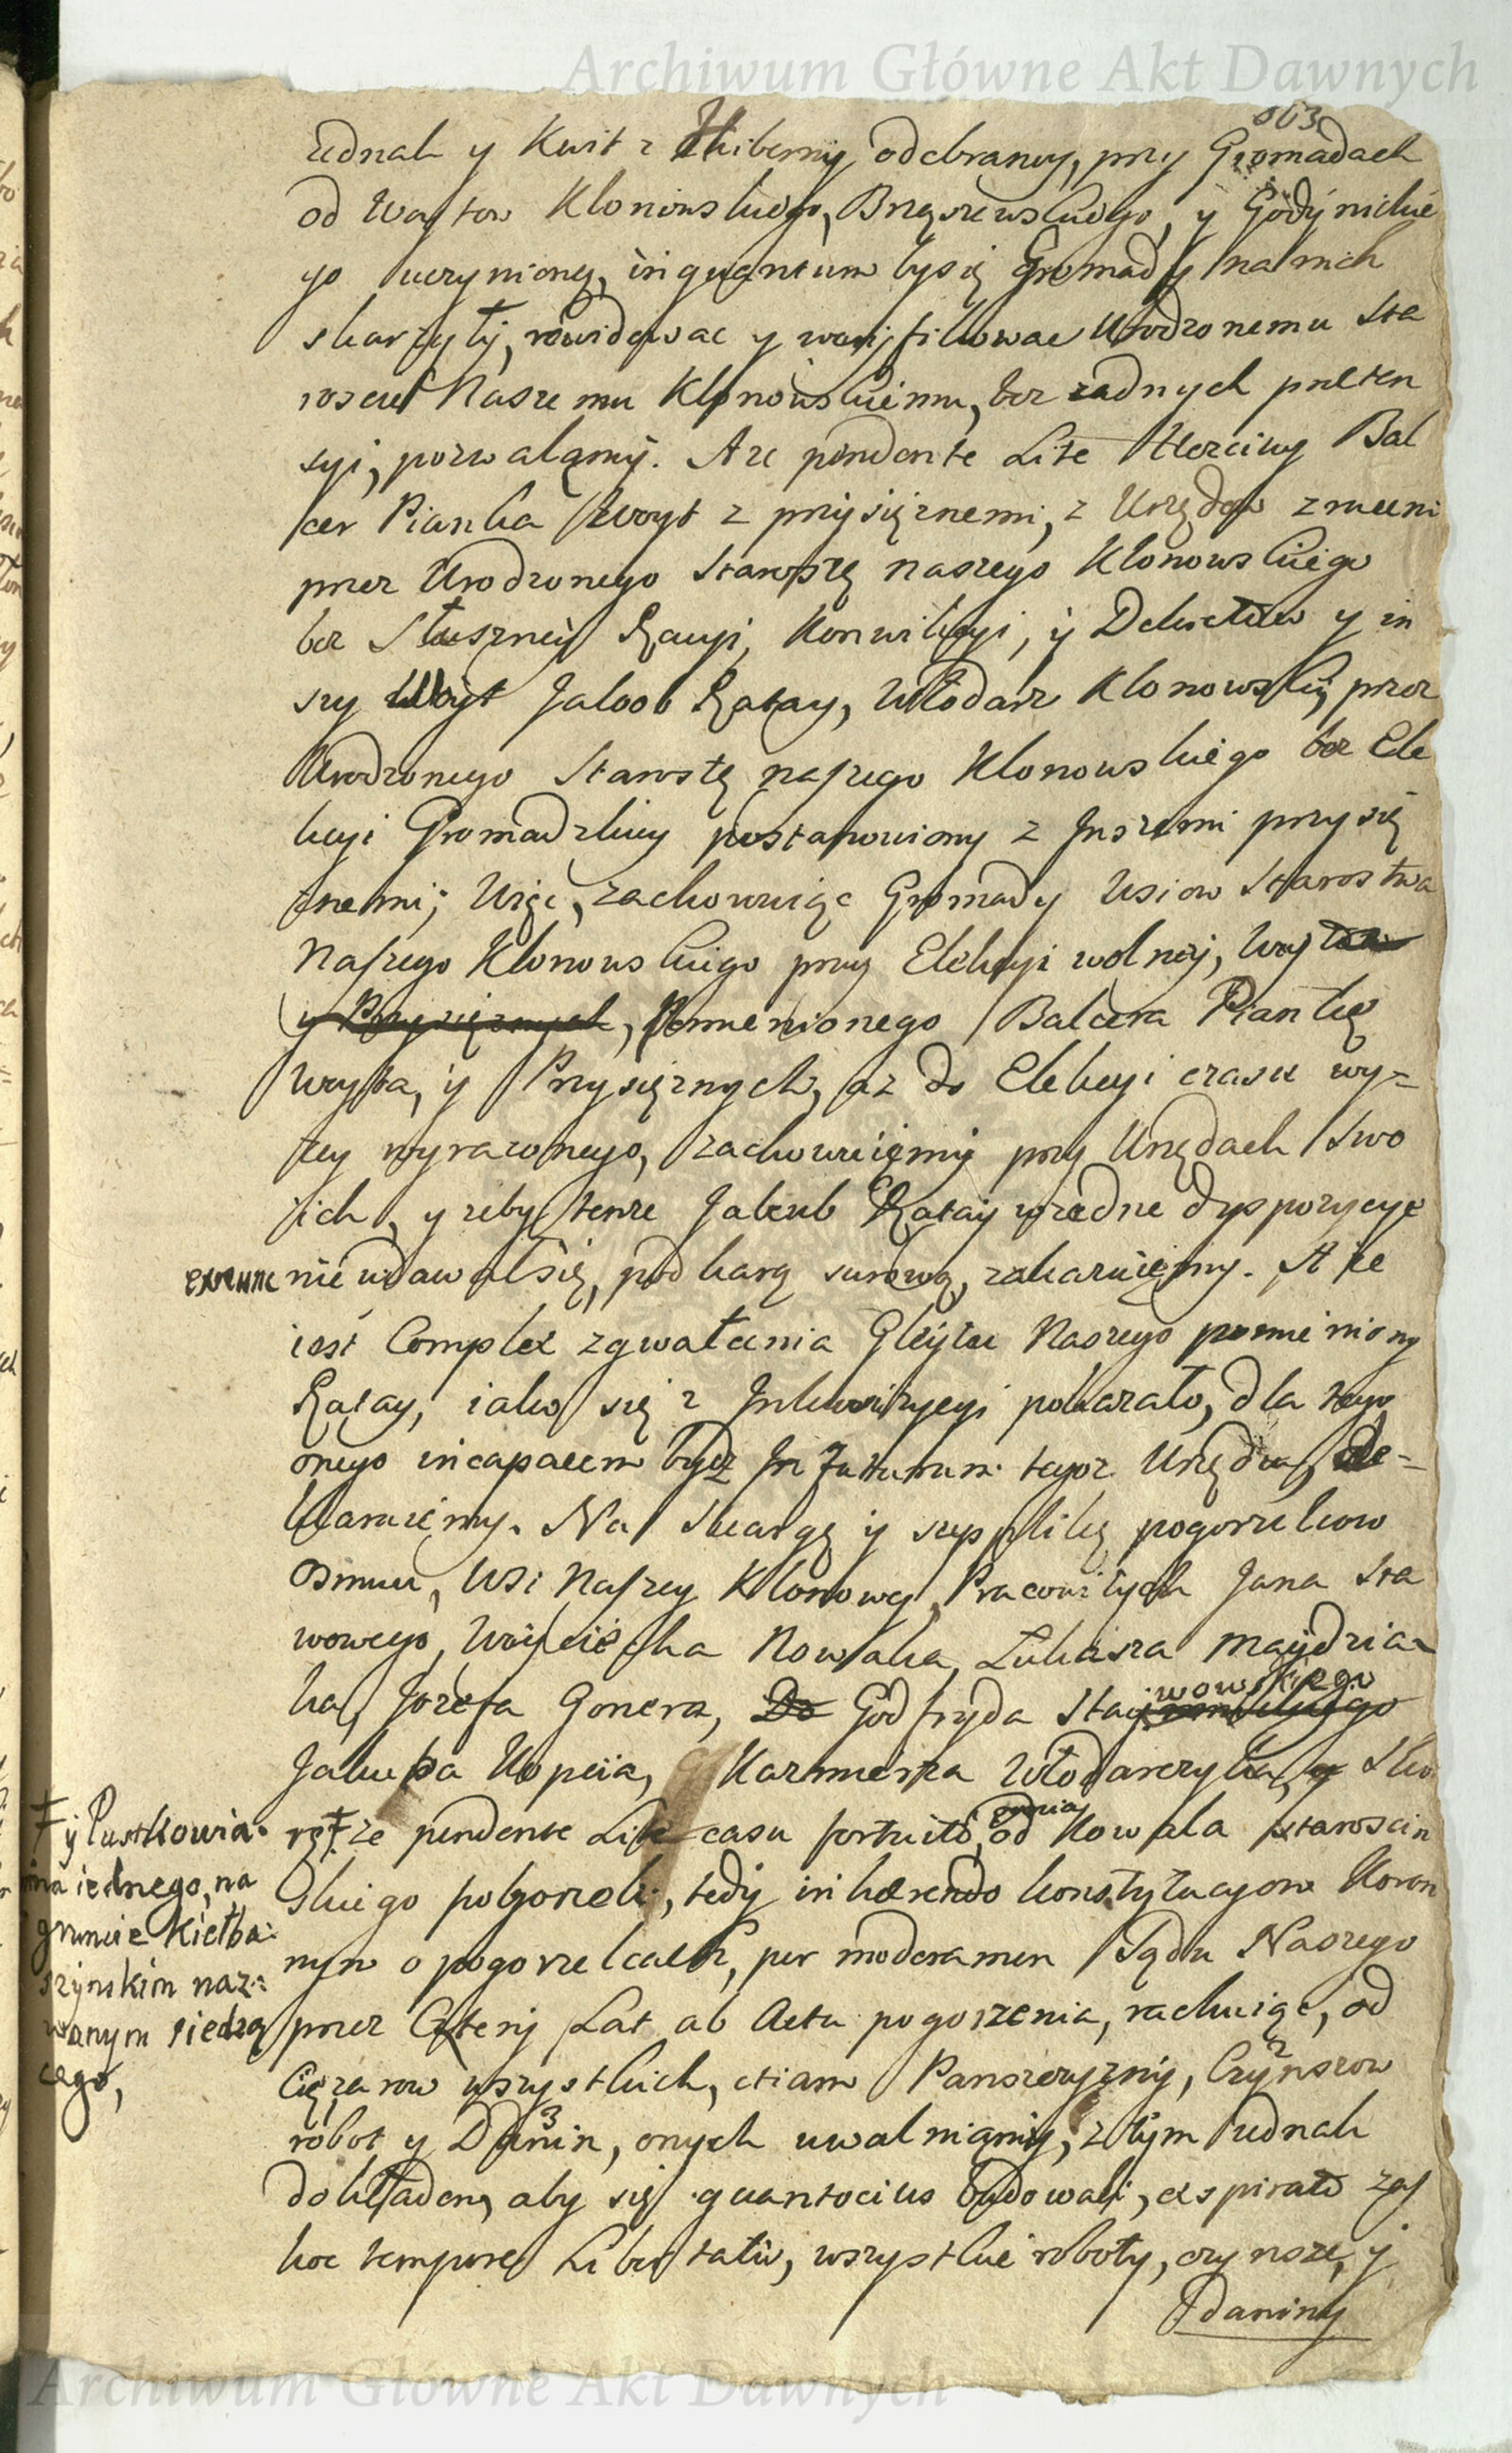 Archiwum Główne Akt Dawnych
063
iednak y Kwit z Hiberny odebrany, przy Gromadach
od Woytow Klonowskiego, Brzęzewskiego, y Godynickie
go uczynioney, in quantum by się Gromady na nich
skarzyły, rewidować y weryfikować Urodzonemu Sta
roscie Naszemu Klonowskiemu, bez zadnych preten
syi, pozwalamy. A ze pendente Lite Uczciwy Bal
cer Pianka Woyt z przysięznemi, z Urzędow zrzuceni
przez Urodzonego Starostę naszego Klonowskiego
bez Słuszney Racyi, Konwikcyi, y Dekretow y in
szy Woyt Jakob Ratay, Włodarz Klonowski, przez
Urodzonego Starostę naszego Klonowskiego bez Ele
kcyi Gromadzkiey postanowiony z Inszemi przysię
znemi; Więc, zachowuiąc Gromady Wsiow Starostwa
Naszego Klonowskiego przy Elekcyi wolney, Woytow
y Przysięznych, Pomienionego Balcera Piankę
Woyta, y Przysięznych, az do Elekcyi czasu wy=
zey wyrazonego, zachowuiemy przy Urzędach Swo
ich, y zeby tenze Jakub Rataj w zadne dyspozycye
exnunc nie wdawał się, pod karą surową, zakazuiemy. A ze
iest Complex zgwałcenia Gleytu Naszego pomieniony
Rataj, iako się z Inkwizycyi pokazało, dla tego
onego incapacem bydz In Futurum tegoz Urzędu, de=
klaruiemy. Na Skargę y supplikę pogorzelcow
osmiu, Wsi Naszey Klonowy, Pracowitych Jana Sta
wowego, Woyciecha Nowaka, Łukasza Maydzia
ka, Jozefa Gonera, Do Godfryda Stay
wowskiego
Jakuba Kopcia, Kazmierza Włodarczyka, y Sko
rę ŧ ze pendente Lite casu fortuito, od
ognia
Kowala Starościn
skiego pogorzeli, tedy inhærendo konstytucyom Koron
nym o pogorzelcach, per moderamen Sądu Naszego
przez Cztery Lat ab Actu pogorzenia, rachuiąc, od
Cięzarow wszystkich, etiam Panszczyzny, Czynszow
2
robot y Danin, onych uwalniamy, z tym iednak
3
dokładem, aby się quantocius budowali, exspirato zas
hoc tempore Libertatis, wszystkie roboty, czynsze, y
Daniny
ŧ y Pustkowia:
nina iednego, na
gruncie Kiełba:
szynskim naz:
wanym siedzą
cego,
Archiwum Główne Akt Dawnych